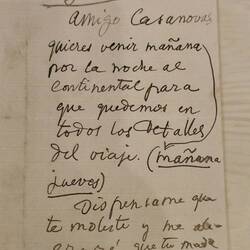 Amigo Casanovas
quieres venir mañana
por la noche al
Continental para
que quedemos en
todos los Detalles
del viaje. (mañana
jueves)
Dispensame que
te moleste y me ale
que tu mada